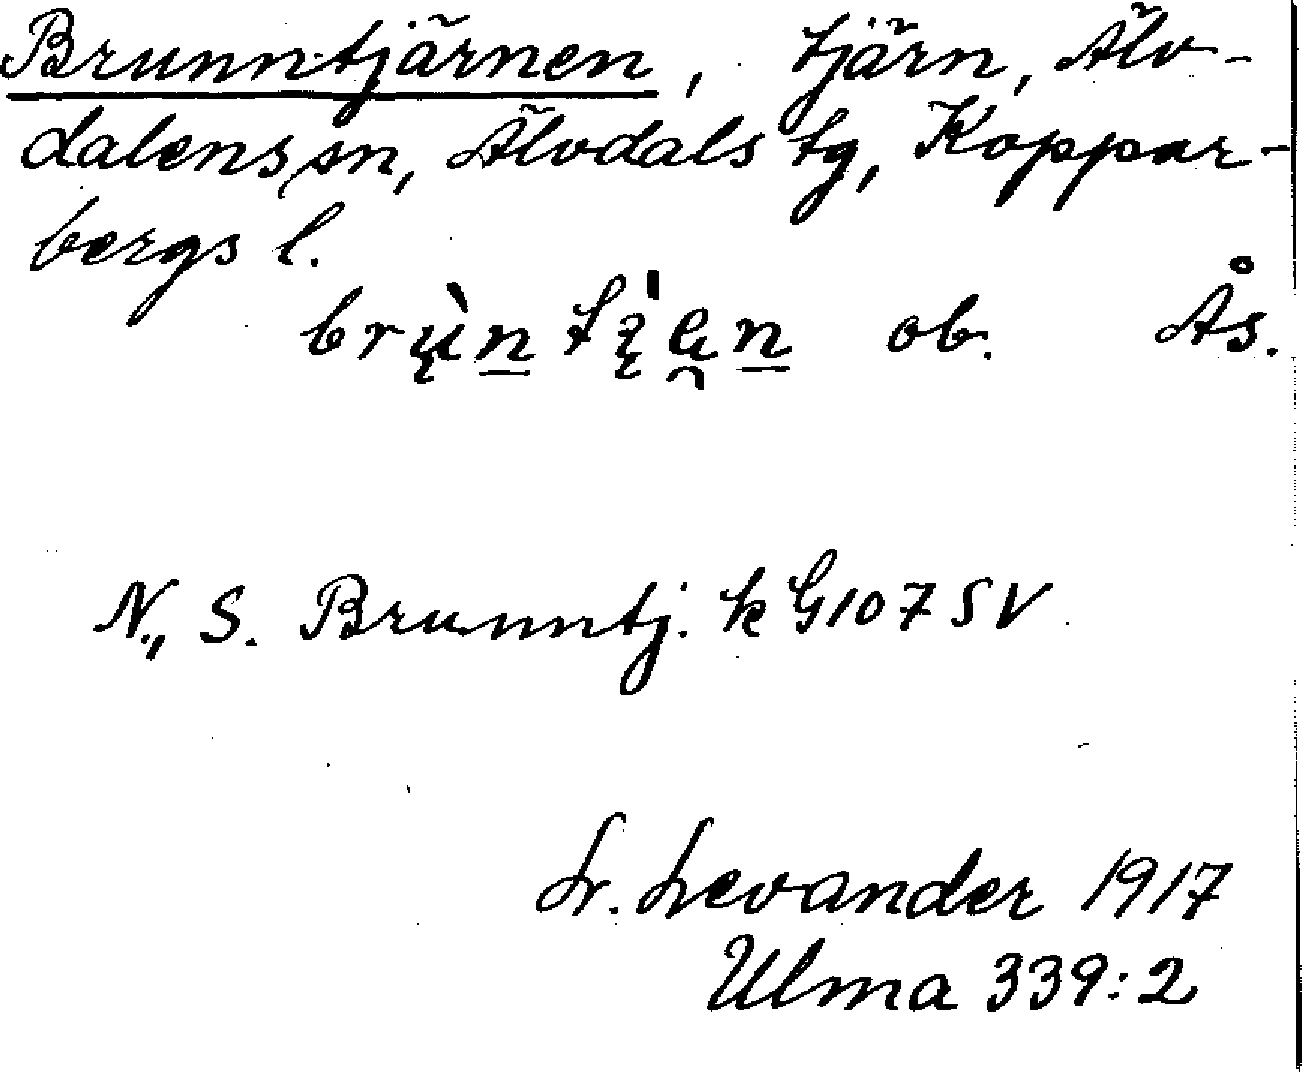 Brunntjärnen, tjärn, Älv-
dalens sn, Älvdals tg, Koppar-
bergs l.
ob. Ås.
N., S. Brunntj. k G107 SV
L. Levander 1917
Ulma 339:2